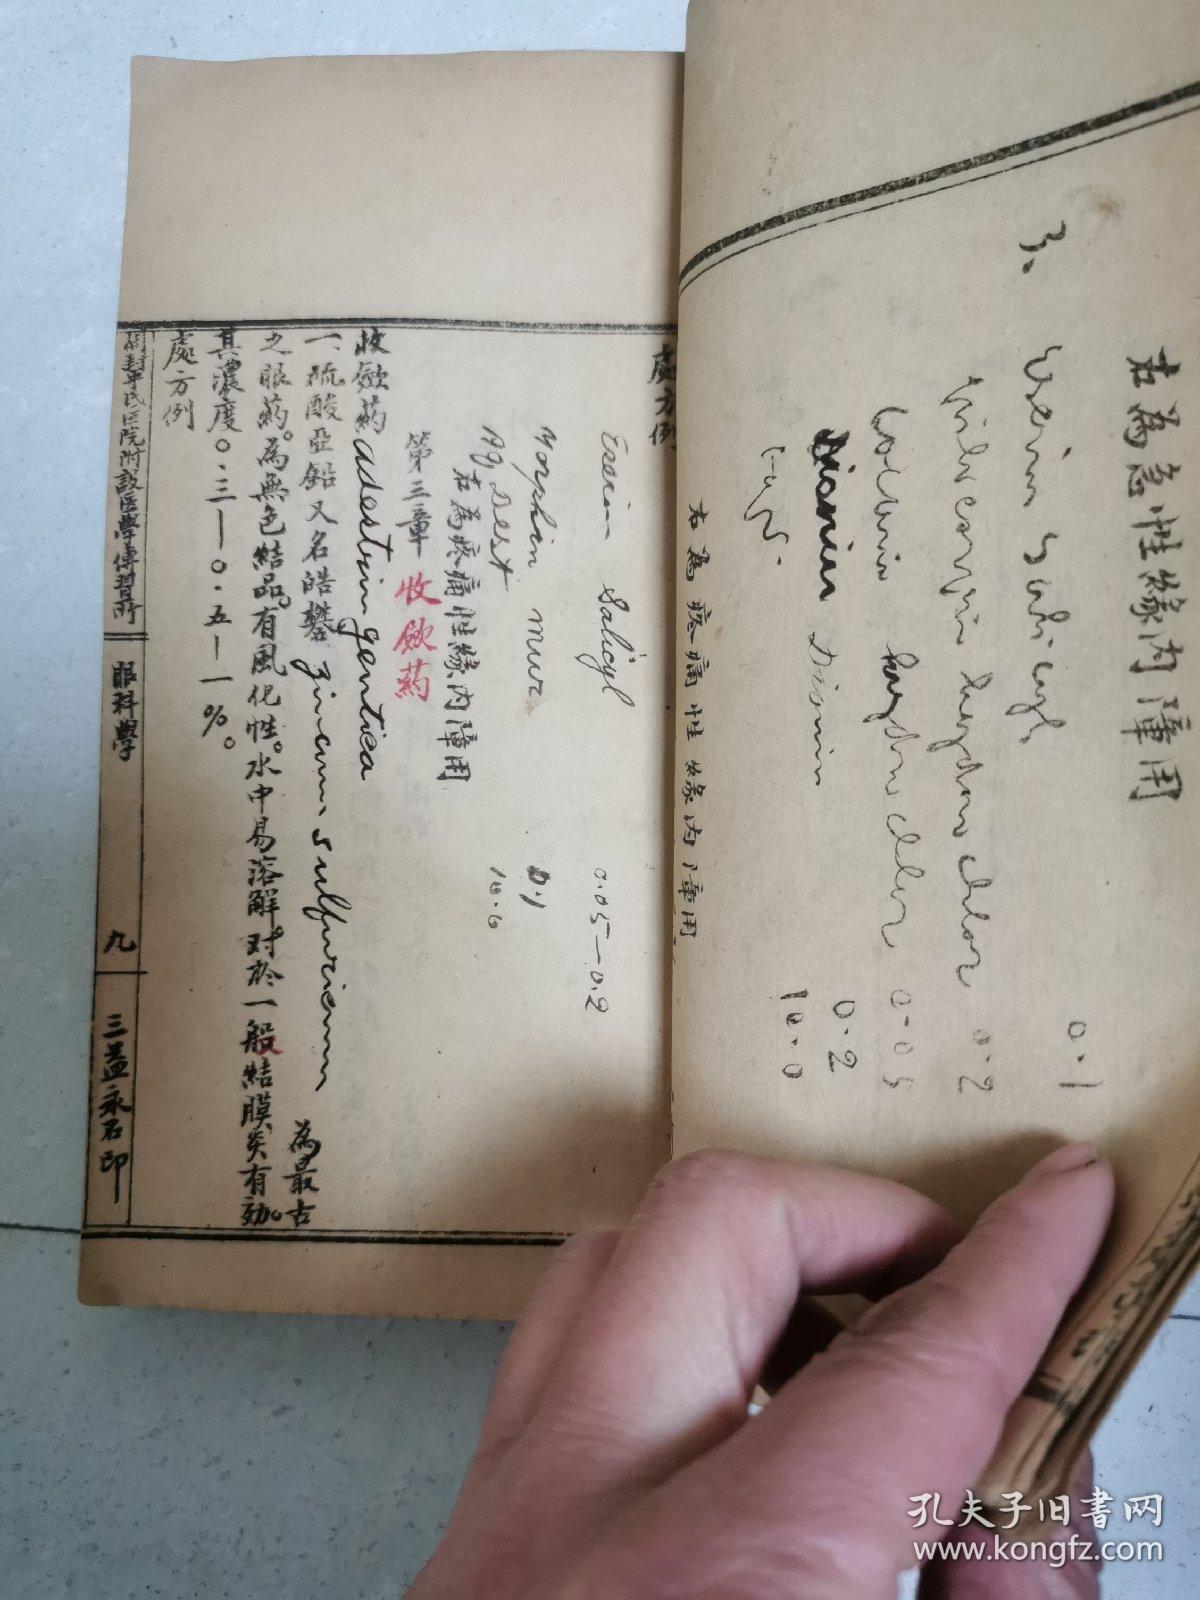 右為急性緑内障用
3.
Eserin Salicyl. 0.1
pilocarpin hydrochlor 0.2
Cocain hydrochlor 0.05
Dionin Dionin 0.2
10.0
右為疼痛性緑内障用
處方例
Eserin Salicyl 0.05—0.2
Morphin mur 0.1
Aq Dest 10.0
右為疼痛性緑内障用
第三章 收歛葯
收歛葯 adestringentica
一、硫酸亞鉛又名皓礬 zincum sulfuricum 為最古
之眼葯。為無色結晶。有風化性。水中易溶解。对於一般結膜炎有効。
其濃度〇.三—〇.五—1%。
處方例
開封軍民医院附設医學傳習所
眼科學
九
三益永石印
孔夫子旧书网
www.kongfz.com